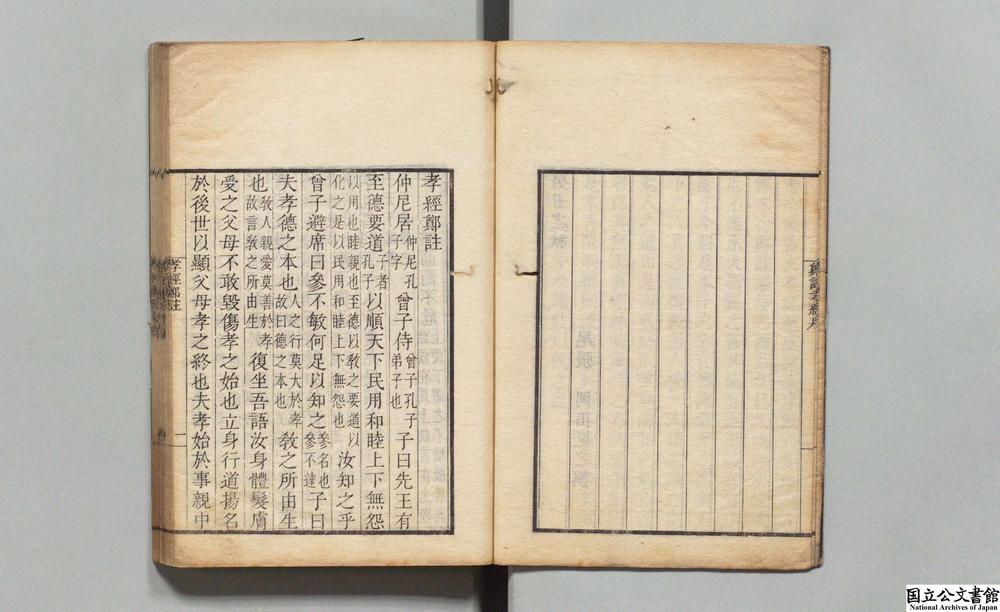 鄭註孝經序
孝經鄭註
仲尼居仲尼孔子字曾子侍曾子孔子弟子也子曰先王有
至德要道子者孔子以順天下民用和睦上下無怨
以用也睦親也至德以敎之要道以化之是以民用和睦上下無怨也汝知之乎
曾子避席曰參不敏何足以知之參名也參不達子曰
夫孝德之本也人之行莫大於孝故曰德之本也敎之所由生
也敎人親愛莫善於孝故言敎之所由生復坐吾語汝身體髮膚
受之父母不敢毀傷孝之始也立身行道揚名
於後世以顯父母孝之終也夫孝始於事親中
孝經鄭註
一
国立公文書館
National Archives of Japan